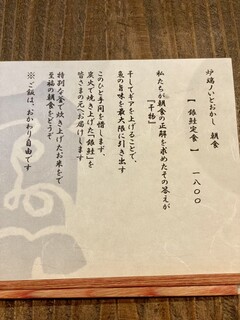 炉端ノいどおかし　朝食
【 銀鮭定食 】　一八〇〇
私たちが朝食の正解を求めたその答えが
『干物』
干してギアを上げることで、
魚の旨味を最大限に引き出す
このひと手間を惜しまず、
炭火で焼き上げた『銀鮭』を
皆さまの元へお届けします
特別な釜で炊き上げたお米をで
至福の朝食をどうぞ
※ ご飯は、おかわり自由です